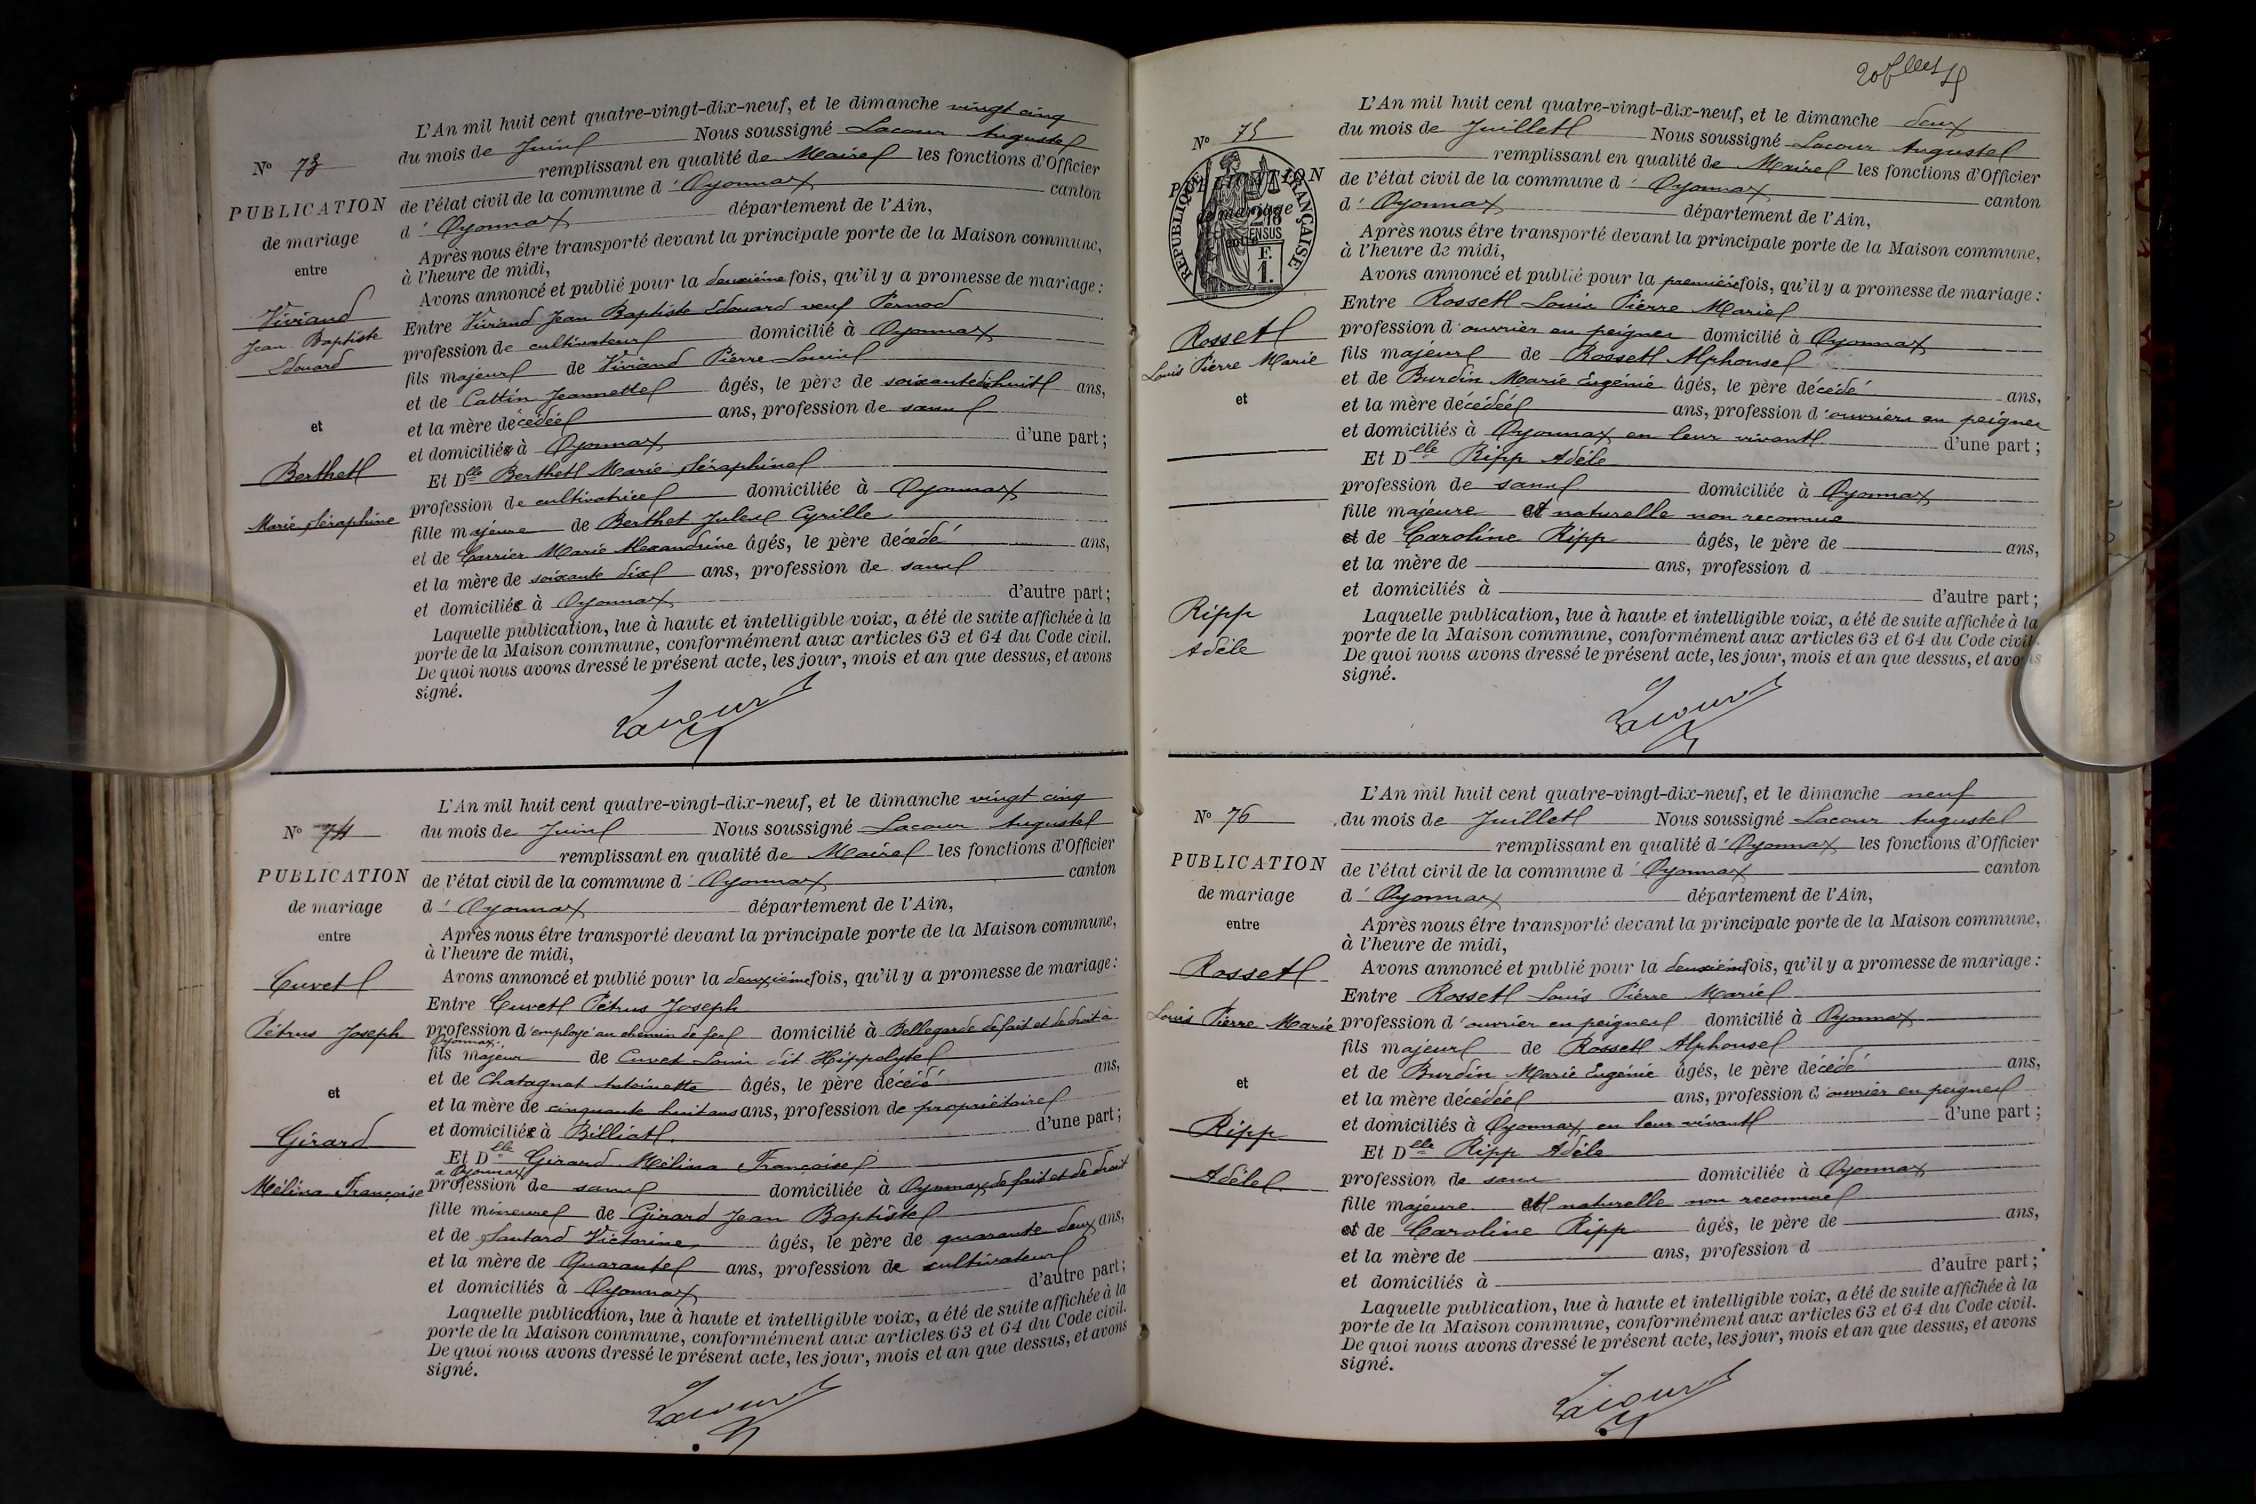 N° 73
PUBLICATION
de mariage
entre
Viviand
Jean Baptiste
Edouard
et
Berthet
Marie Séraphine
L'An mil huit cent quatre-vingt-dix-neuf, et le dimanche vingt cinq
du mois de Juin Nous soussigné Lacour Auguste
remplissant en qualité de Maire les fonctions d'Officier
de l'état civil de la commune d'Oyonnax canton
d'Oyonnax département de l'Ain,
Après nous être transporté devant la principale porte de la Maison commune,
à l'heure de midi,
Avons annoncé et publié pour la deuxième fois, qu'il y a promesse de mariage :
Entre Viviand Jean Baptiste Edouard veuf Pernod
profession de cultivateur domicilié à Oyonnax
fils majeur de Viviand Pierre Louis
et de Cattin Jeannette âgés, le père de soixante dix huit ans,
et la mère décédée ans, profession de sans
et domicilié à Oyonnax d'une part ;
Et Dlle Berthet Marie Séraphine
profession de cultivatrice domiciliée à Oyonnax
fille majeure de Berthet Jules Cyrille
et de Carrier Marie Alexandrine âgés, le père décédé ans,
et la mère de soixante dix ans, profession de sans
et domiciliée à Oyonnax d'autre part ;
Laquelle publication, lue à haute et intelligible voix, a été de suite affichée à la
porte de la Maison commune, conformément aux articles 63 et 64 du Code civil.
De quoi nous avons dressé le présent acte, les jour, mois et an que dessus, et avons
signé.
Lacour
N° 74
PUBLICATION
de mariage
entre
Cuvet
Pétrus Joseph
et
Girard
Mélina Françoise
L'An mil huit cent quatre-vingt-dix-neuf, et le dimanche vingt cinq
du mois de Juin Nous soussigné Lacour Auguste
remplissant en qualité de Maire les fonctions d'Officier
de l'état civil de la commune d'Oyonnax canton
d'Oyonnax département de l'Ain,
Après nous être transporté devant la principale porte de la Maison commune,
à l'heure de midi,
Avons annoncé et publié pour la deuxième fois, qu'il y a promesse de mariage :
Entre Cuvet Pétrus Joseph
profession d'employé au chemin de fer domicilié à Bellegarde de fait et de droit à
Oyonnax
fils majeur de Cuvet Louis dit Hippolyte
et de Chatagnat Antoinette âgés, le père décédé ans,
et la mère de cinquante huit ans ans, profession de propriétaire
et domiciliée à Billiat d'une part ;
Et Dlle Girard Mélina Françoise
à Oyonnax
profession de sans domiciliée à Oyonnax de fait et de droit
fille mineure de Girard Jean Baptiste
et de Santard Victorine âgés, le père de quarante deux ans,
et la mère de Quarante ans, profession de cultivateurs
et domiciliés à Oyonnax d'autre part ;
Laquelle publication, lue à haute et intelligible voix, a été de suite affichée à la
porte de la Maison commune, conformément aux articles 63 et 64 du Code civil.
De quoi nous avons dressé le présent acte, les jour, mois et an que dessus, et avons
signé.
Lacour
N° 75
PUBLICATION
de mariage
RÉPUBLIQUE FRANÇAISE
Rosset
Louis Pierre Marie
et
Ripp
Adèle
L'An mil huit cent quatre-vingt-dix-neuf, et le dimanche deux
du mois de Juillet Nous soussigné Lacour Auguste
remplissant en qualité de Maire les fonctions d'Officier
de l'état civil de la commune d'Oyonnax canton
d'Oyonnax département de l'Ain,
Après nous être transporté devant la principale porte de la Maison commune,
à l'heure de midi,
Avons annoncé et publié pour la première fois, qu'il y a promesse de mariage :
Entre Rosset Louis Pierre Marie
profession d'ouvrier en peignes domicilié à Oyonnax
fils majeur de Rosset Alphonse
et de Burdin Marie Eugénie âgés, le père décédé ans,
et la mère décédée ans, profession d'ouvriers en peignes
et domiciliés à Oyonnax en leur vivant d'une part ;
Et Dlle Ripp Adèle
profession de sans domiciliée à Oyonnax
fille majeure et naturelle non reconnue
et de Caroline Ripp âgés, le père de ans,
et la mère de ans, profession d
et domiciliés à d'autre part ;
Laquelle publication, lue à haute et intelligible voix, a été de suite affichée à la
porte de la Maison commune, conformément aux articles 63 et 64 du Code civil.
De quoi nous avons dressé le présent acte, les jour, mois et an que dessus, et avons
signé.
Lacour
N° 76
PUBLICATION
de mariage
entre
Rosset
Louis Pierre Marie
et
Ripp
Adèle
L'An mil huit cent quatre-vingt-dix-neuf, et le dimanche neuf
du mois de Juillet Nous soussigné Lacour Auguste
remplissant en qualité d'Oyonnax les fonctions d'Officier
de l'état civil de la commune d'Oyonnax canton
d'Oyonnax département de l'Ain,
Après nous être transporté devant la principale porte de la Maison commune,
à l'heure de midi,
Avons annoncé et publié pour la deuxième fois, qu'il y a promesse de mariage :
Entre Rosset Louis Pierre Marie
profession d'ouvrier en peignes domicilié à Oyonnax
fils majeur de Rosset Alphonse
et de Burdin Marie Eugénie âgés, le père décédé ans,
et la mère décédée ans, profession d'ouvrier en peignes
et domiciliés à Oyonnax en leur vivant d'une part ;
Et Dlle Ripp Adèle
profession de sans domiciliée à Oyonnax
fille majeure et naturelle non reconnue
et de Caroline Ripp âgés, le père de ans,
et la mère de ans, profession d
et domiciliés à d'autre part ;
Laquelle publication, lue à haute et intelligible voix, a été de suite affichée à la
porte de la Maison commune, conformément aux articles 63 et 64 du Code civil.
De quoi nous avons dressé le présent acte, les jour, mois et an que dessus, et avons
signé.
Lacour